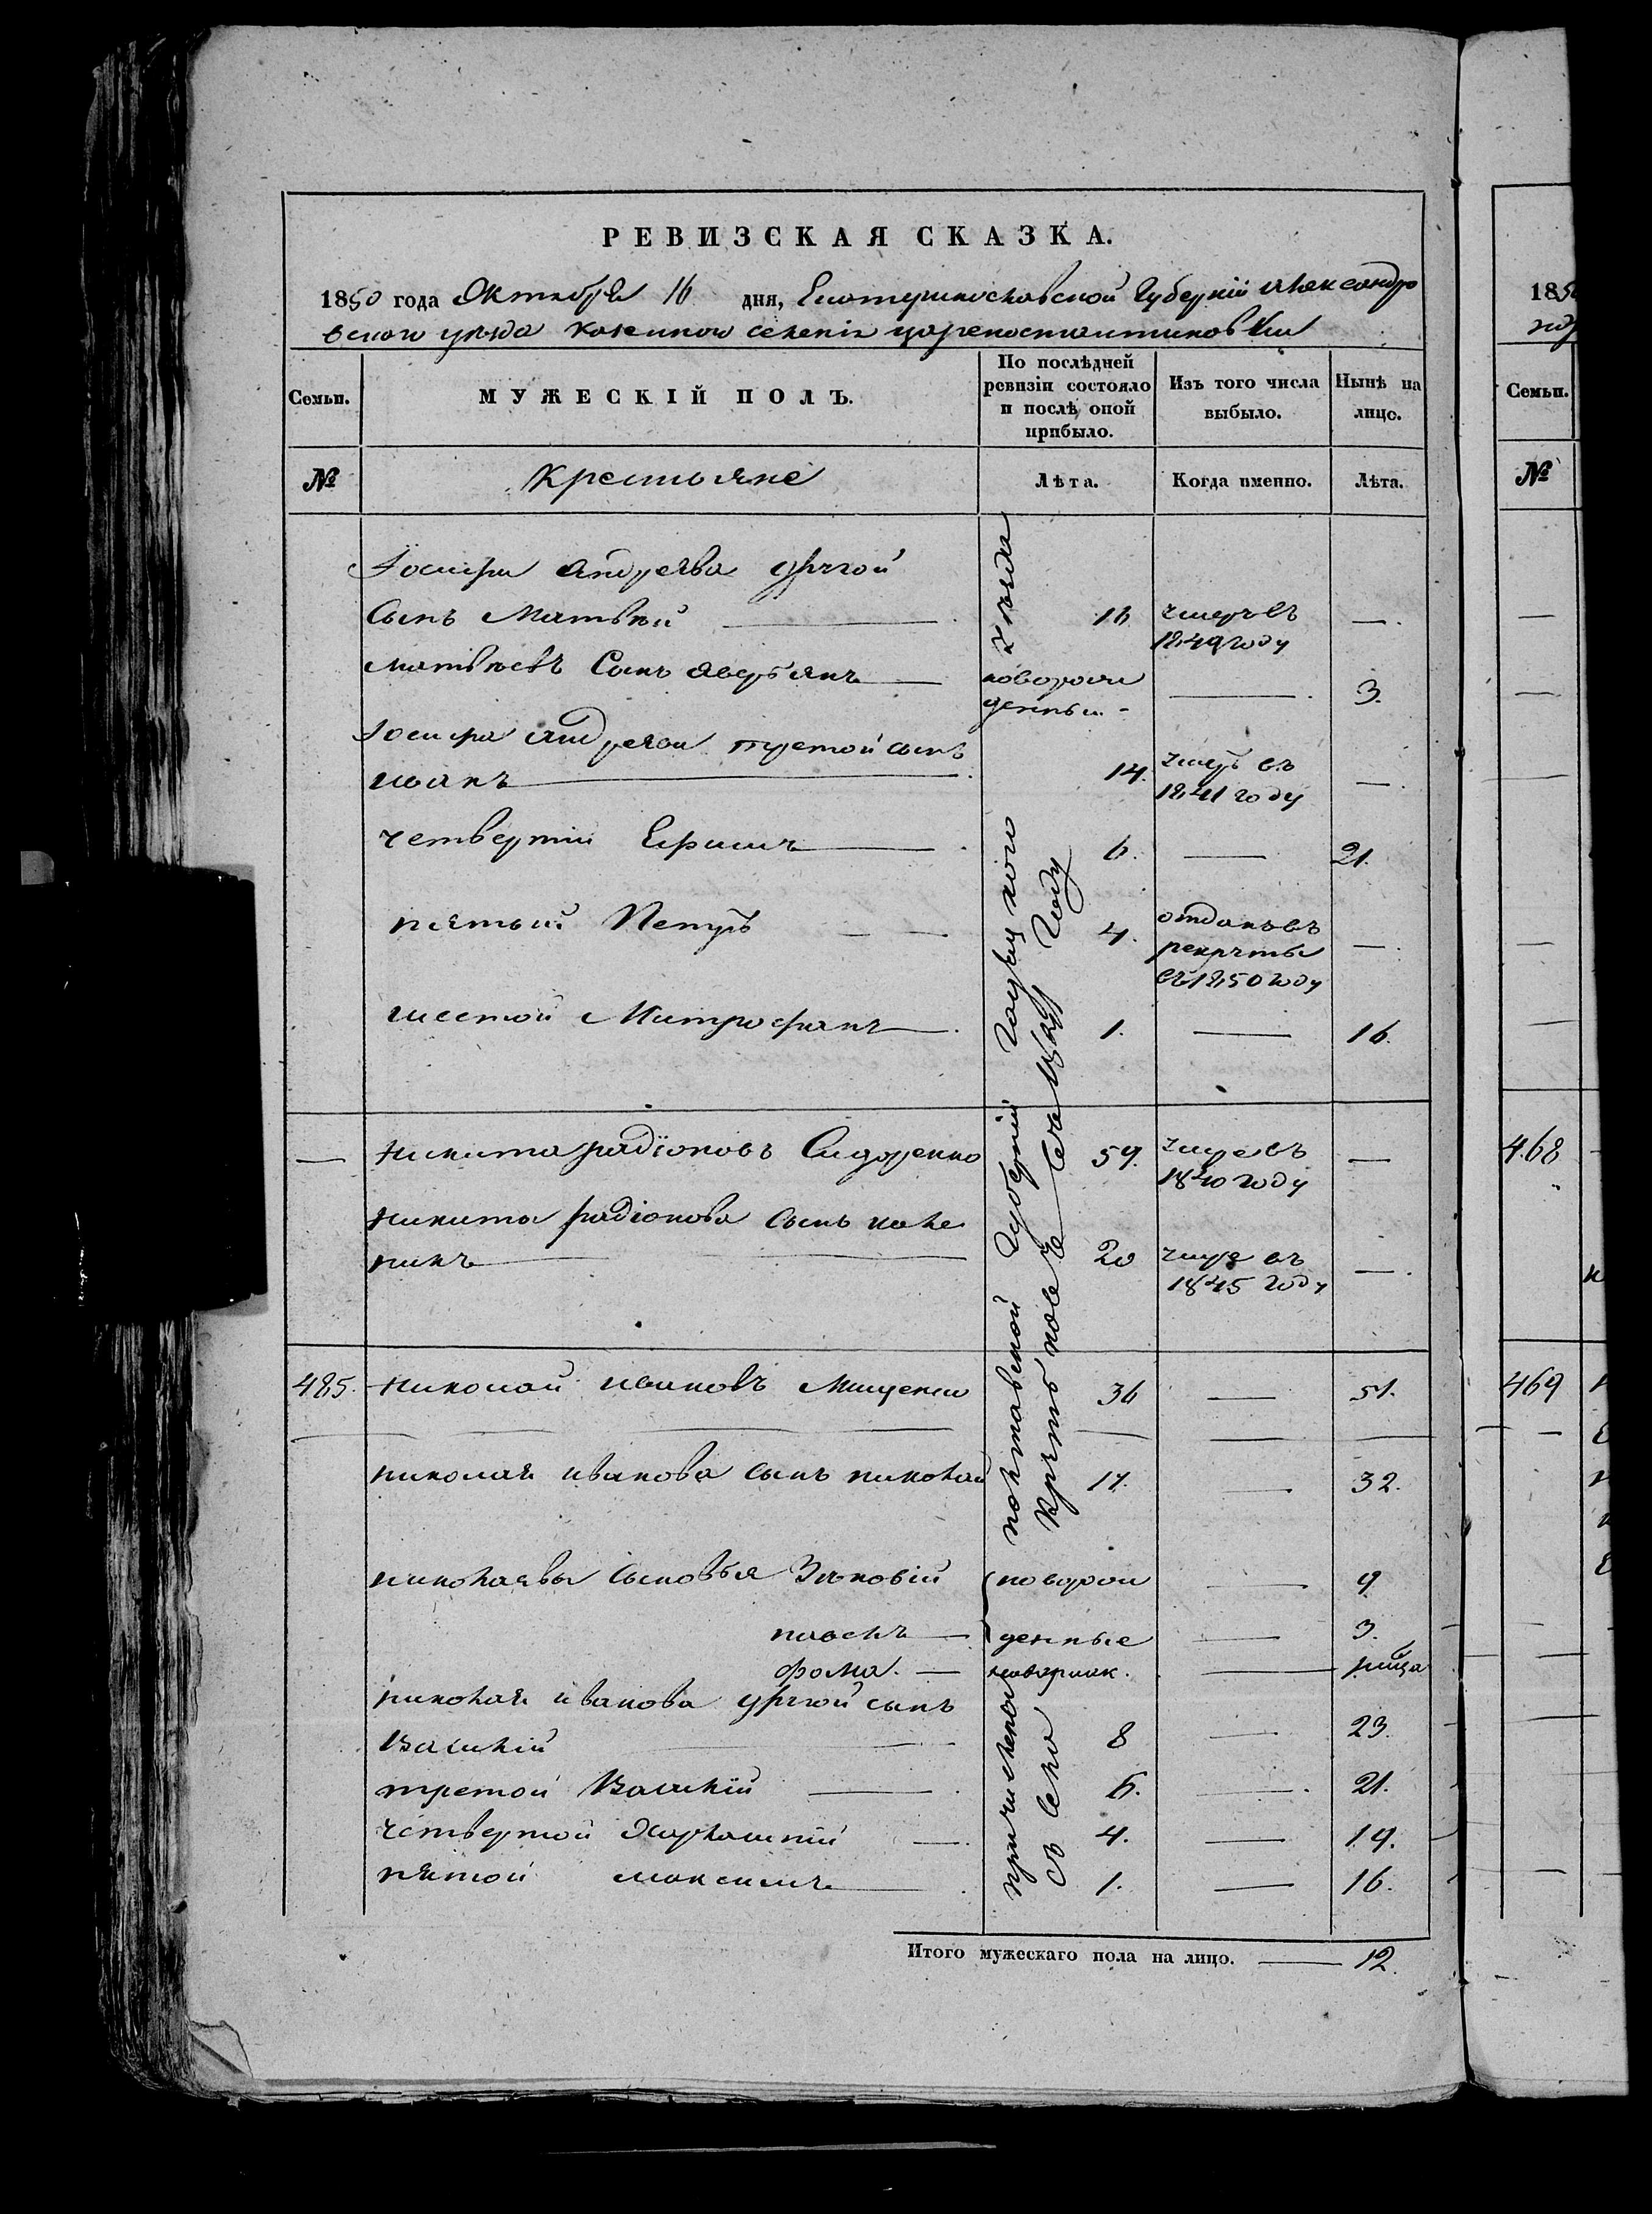 РЕВИЗСКАЯ СКАЗКА.
1850 года Октября 16 дня, Екатеринославской Губернїи Александро
вского уѣзда казенного селенія цареконстантиновки
Семьи.
МУЖЕСКІЙ ПОЛЪ.
По послѣдней
ревизіи состояло
и послѣ оной
прибыло.
Изъ того числа
выбыло.
Нынѣ на
лицо.
№
Крестьяне
Лѣта.
Когда именно.
Лѣта.
Іосифа Андреева другой
Сынъ Матвѣй 16 умеръ въ
1849 году —
матвѣевъ Сынъ аверьянъ — новорож
денный — 3.
Іосифа Андреева третой сынъ
иванъ 14. умеръ въ
1841 году —
четвертій Ефимъ 6. — 21.
пятый Петръ 4. отданъ въ
рекруты
въ 1850 году —
шестой Митрофанъ 1. — 16.
— Никита радїоновъ Сидоренко 59. умре въ
1840 году —
Никиты радіонова сынъ кале
никъ 20 умре въ
1845 году —
485. Николай ивановъ Мищенко 36 — 51.
николая иванова сынъ николай 17. — 32.
николаевы Сыновья Зѣновій новорож — 9
павелъ — денные — 3.
фома. —
николая иванова другой сынъ
Василій 8 — 23.
третой Василїй 6. — 21.
четвертой Харлампїй 4. — 19.
пятой максимъ 1. — 16.
полтавской губернїи уезда
году
причислены
въ село
Итого мужескаго пола на лицо. — 12.
185
Семьи.
№
468
469